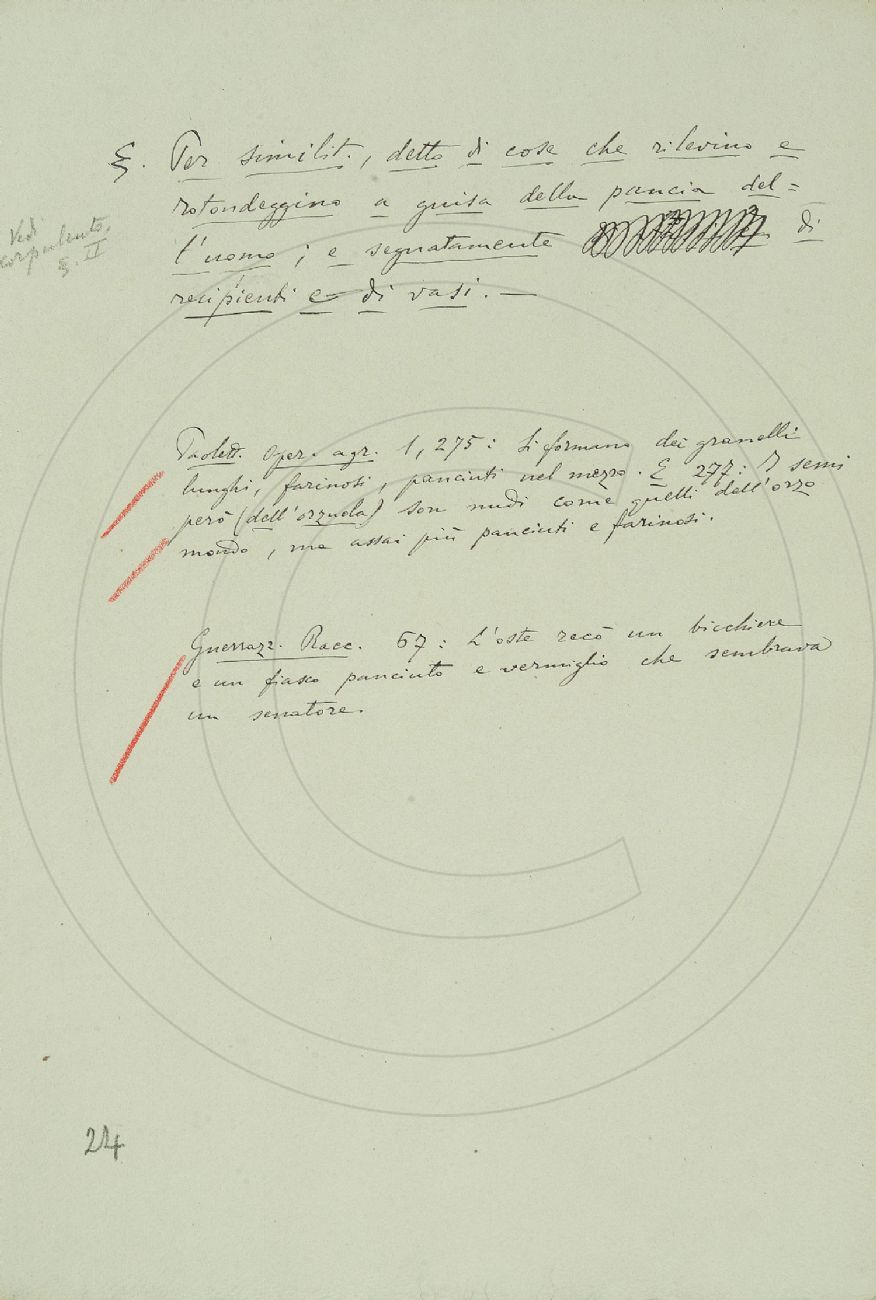 §. Per similit., detto di cose che rilevino e
rotondeggino a guisa della pancia del=
l'uomo; e segnatamente di
recipienti e di vasi. —
Ved.
corpulento,
§. II
Paolett. Oper. agr. 1, 275: Si formano dei granelli
lunghi, farinosi, panciuti nel mezzo. E 277: I semi
però (dell'orzuola) son nudi come quelli dell'orzo
mondo, ma assai più panciuti e farinosi.
Guerrazz. Racc. 67: L'oste recò un bicchiere
e un fiasco panciuto e vermiglio che sembrava
un senatore.
24